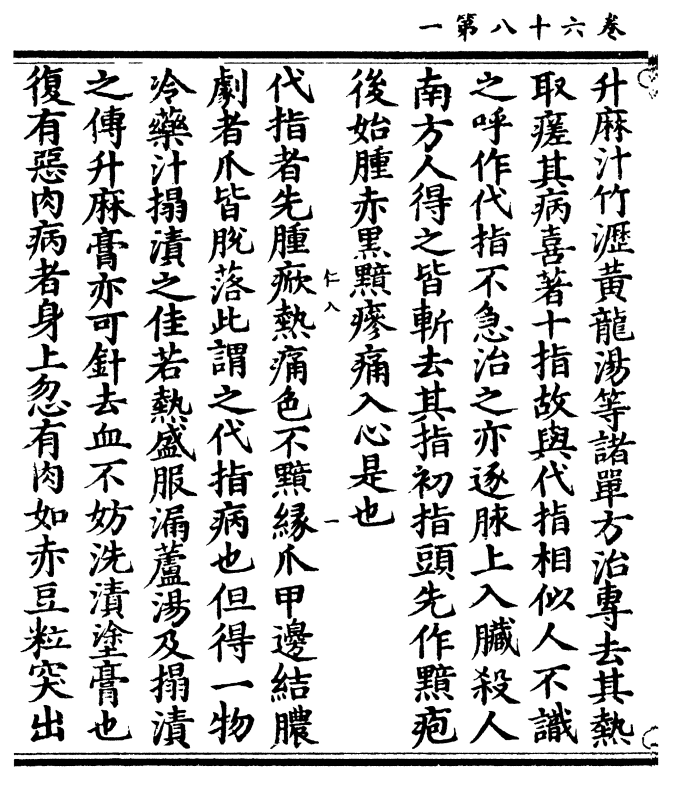 卷六十八第一
升麻汁竹瀝黃龍湯等諸單方治專去其熱
取瘥其病喜著十指故與代指相似人不識
之呼作代指不急治之亦逐脉上入臟殺人
南方人得之皆斬去其指初指頭先作黯疱
後始腫赤黑黯瘮痛入心是也
仁入 一
代指者先腫焮熱痛色不黯緣爪甲邊結膿
劇者爪皆脫落此謂之代指病也但得一物
冷藥汁搨漬之佳若熱盛服漏蘆湯及搨漬
之傅升麻膏亦可針去血不妨洗漬塗膏也
復有惡肉病者身上忽有肉如赤豆粒突出